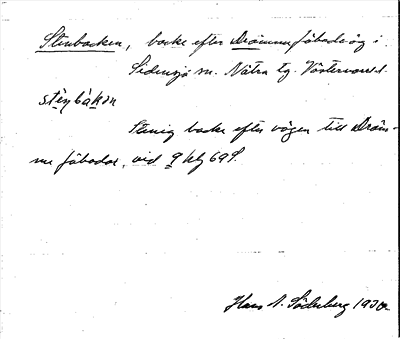 Stenbacken, backe efter Drömmefäbodväg i
Sidensjö sn. Nätra tg. Västernorrl.
stèṇbàkan
Stenig backe efter vägen till Dröm-
me fäbodar, vid 9 hlg 698.
Hans A. Söderberg 1930